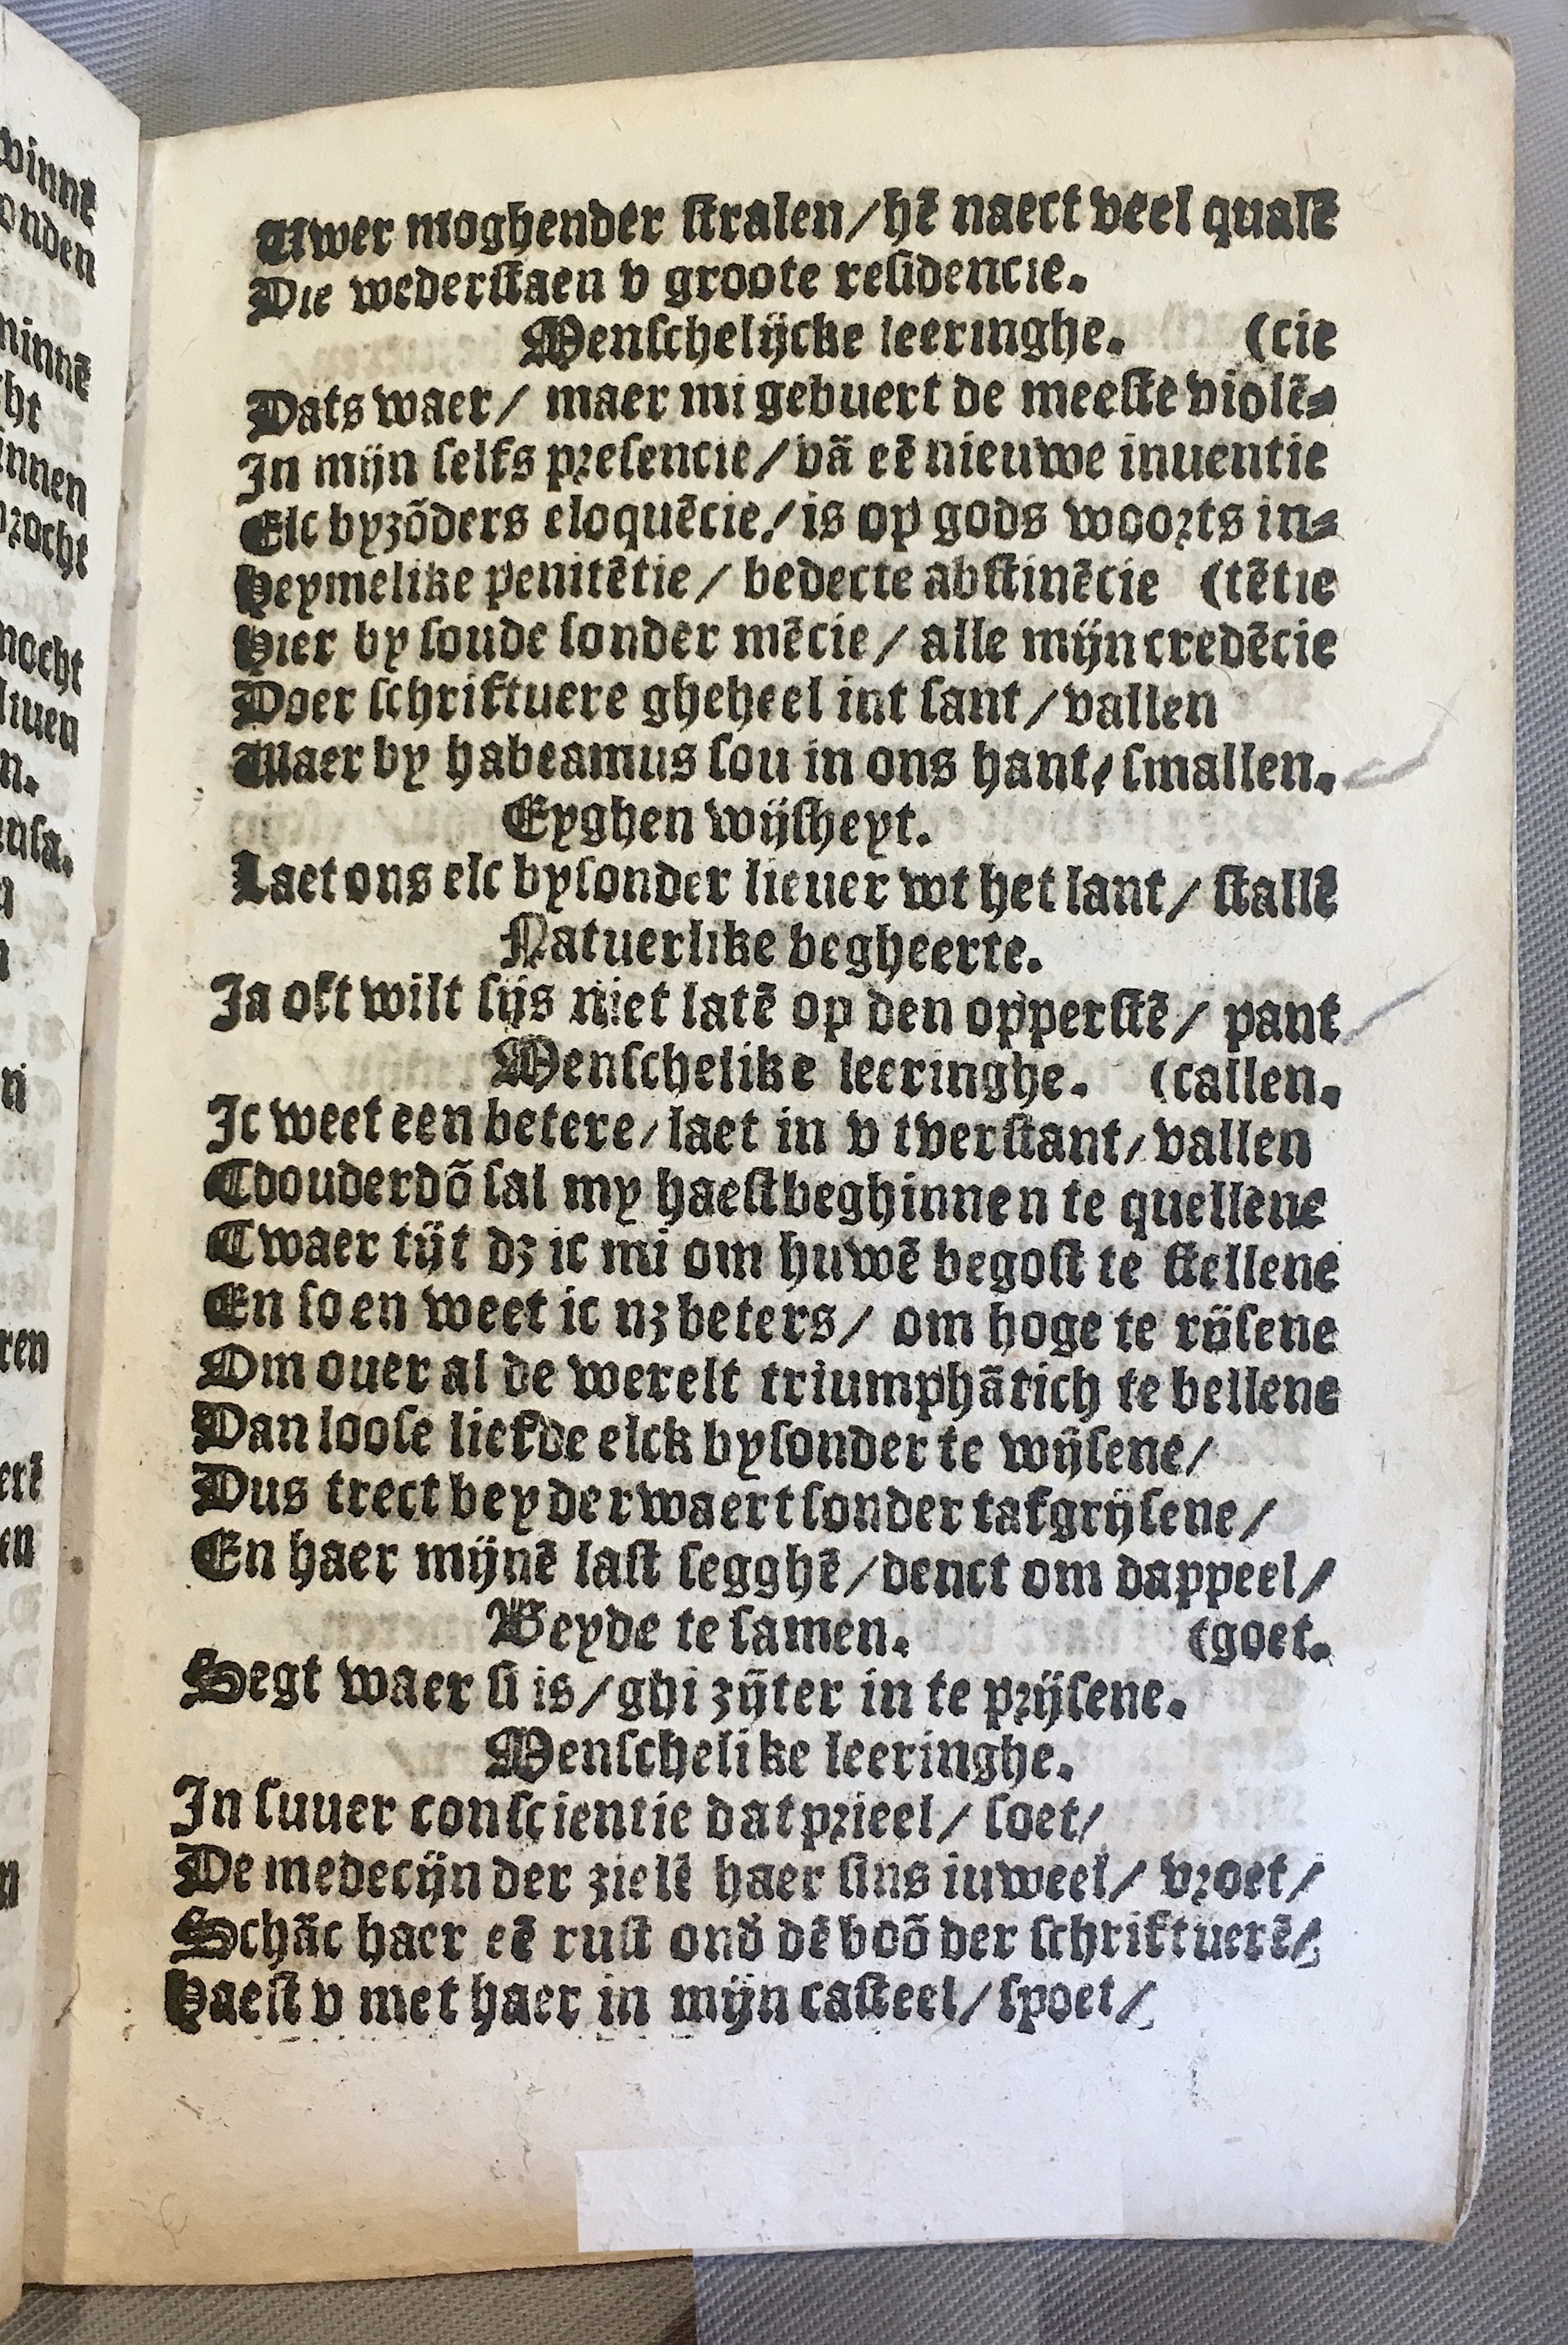 winnē
onden
ninnē
cht
innen
brocht
mocht
liuen
n.
ensa.
n
n
ren
erē
en
n
Uwer moghender stralen/hē naect veel qualē
Die wederstaen v groote residencie.
Menschelijcke leeringhe. (cie
Dats waer/ maer mi gebuert de meeste violē=
In mijn selfs presencie/vā eē nieuwe inuentie
Elc byzōders eloquēcie/is op gods woorts in=
Heymelike penitētie/ bedecte abstinēcie (tētie
Hier by soude sonder mēcie/ alle mijn credēcie
Doer schriftuere gheheel int sant/vallen
Waer by habeamus sou in ons hant/smallen.
Eyghen wijsheyt.
Laet ons elc bysonder lieuer wt het lant/ stallē
Natuerlike begheerte.
Ja oft wilt sijs niet latē op den opperstē/ pant
Menschelike leeringhe. (callen.
Ic weet een betere/laet in v tverstant/vallen
Tdouderdō sal my haest beghinnen te quellene
Twaer tijt dz ic mi om huwē begost te stellene
En so en weet ic nz beters/ om hoge te rijsene
Om ouer al de werelt triumphātich te bellene
Dan loose liefde elck bysonder te wijsene/
Dus trect beyderwaert sonder tafgrijsene/
En haer mijnē last segghē/denct om dappeel/
Beyde te samen. (goet.
Segt waer si is/ghi zijter in te prijsene.
Menschelike leeringhe.
In suuer conscientie dat prieel/ soet/
De medecijn der zielē haer sins iuweel/ vroet/
Schāc haer eē rust onđ dē boō der schriftuerē/
Haest v met haer in mijn casteel/spoet/